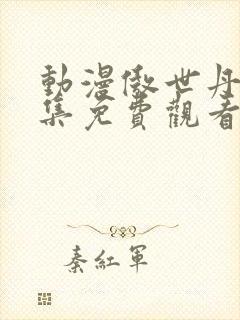 動漫傲世丹
集免費觀看
秦紅軍